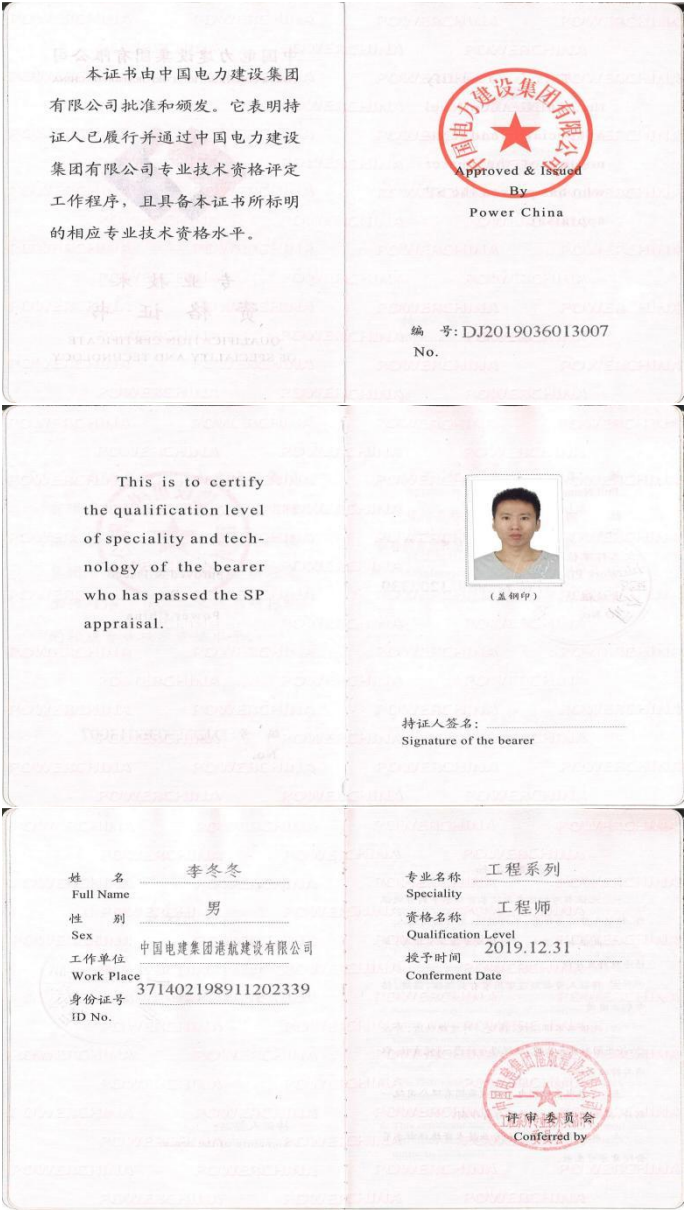 本证书由中国电力建设集团
有限公司批准和颁发。它表明持
证人已履行并通过中国电力建设
集团有限公司专业技术资格评定
工作程序，且具备本证书所标明
的相应专业技术资格水平。
中国电力建设集团有限公司
Approved & Issued
By
Power China
编 号: DJ2019036013007
No.
This is to certify
the qualification level
of speciality and tech-
nology of the bearer
who has passed the SP
appraisal.
(盖钢印)
持证人签名:
Signature of the bearer
姓 名 李冬冬
Full Name
性 别 男
Sex
工作单位 中国电建集团港航建设有限公司
Work Place
身份证号 371402198911202339
ID No.
专业名称 工程系列
Speciality
资格名称 工程师
Qualification Level
授予时间 2019.12.31
Conferment Date
中国电建集团港航建设有限公司
评审委员会
Conferred by